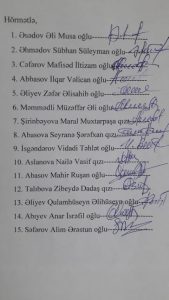 Hörmətlə,
1. Əsədov Əli Musa oğlu
2. Əhmədov Sübhan Süleyman oğlu
3. Cəfərov Məfisəd İltizam oğlu
4. Abbasov İlqar Vəlican oğlu
5. Əliyev Zəfər Əlisahib oğlu
6. Məmmədli Müzəffər Əli oğlu
7. Şirinbayova Maral Muxtarpaşa qızı
8. Abasova Səyranə Şərəfxan qızı
9. İsgəndərov Vidadi Təhlət oğlu
10. Aslanova Nailə Vasif qızı
11. Abasov Mahir Ruşan oğlu
12. Talıbova Zibeydə Dadaş qızı
13. Əliyev Qulamhüseyn Əlihüseyn oğlu
14. Abıyev Anar İsrafil oğlu
15. Səfərov Alim Ərəstun oğlu